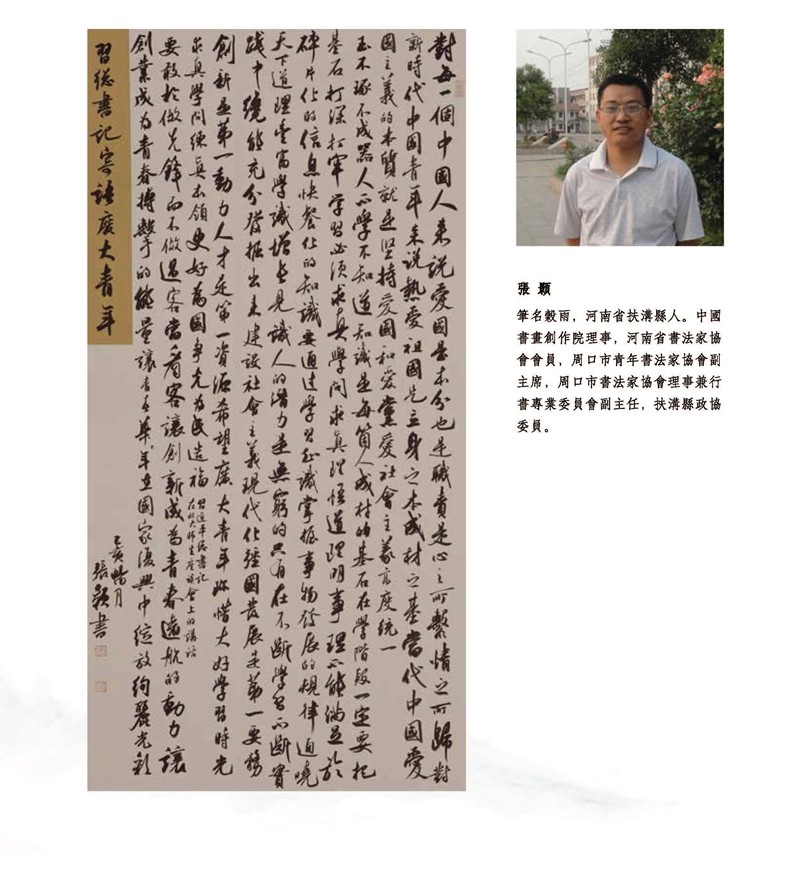 對每一個中國人来說愛國是本分也是職責是心之所繫情之所歸對
新時代中國青年来說熱愛祖國是立身之本成材之基當代中國愛
國主義的本質就是坚持愛國和愛黨愛社會主義高度統一
玉不琢不成器人不學不知道知識是每箇人成材的基石在學階段一定要把
基石打深打牢學習必須求真學問求真理悟道理明事理不能滿足於
碎片化的信息快餐化的知識要通过學習知識掌握事物發展的規律通曉
天下道理豐富學識增長見識人的潛力是無窮的只有在不斷學習不斷實
踐中纔能充分發掘出来建設社會主義現代化強國發展是第一要務
創新是第一動力人才是第一資源希望廣大青年珍惜大好學習時光
求真學問練真本領更好為國爭光為民造福
習近平総書記
在北大師生座談會上的講話
要敢於做先鋒而不做過客當看客讓創新成為青春遠航的動力讓
創業成為青春搏擊的能量讓青春年華在國家復興中綻放絢麗光彩
己亥暢月
張穎書
習総書記寄語廣大青年
張 穎
筆名穀雨，河南省扶溝縣人。中國
書畫創作院理事，河南省書法家協
會會員，周口市青年書法家協會副
主席，周口市書法家協會理事兼行
書專業委員會副主任，扶溝縣政協
委員。